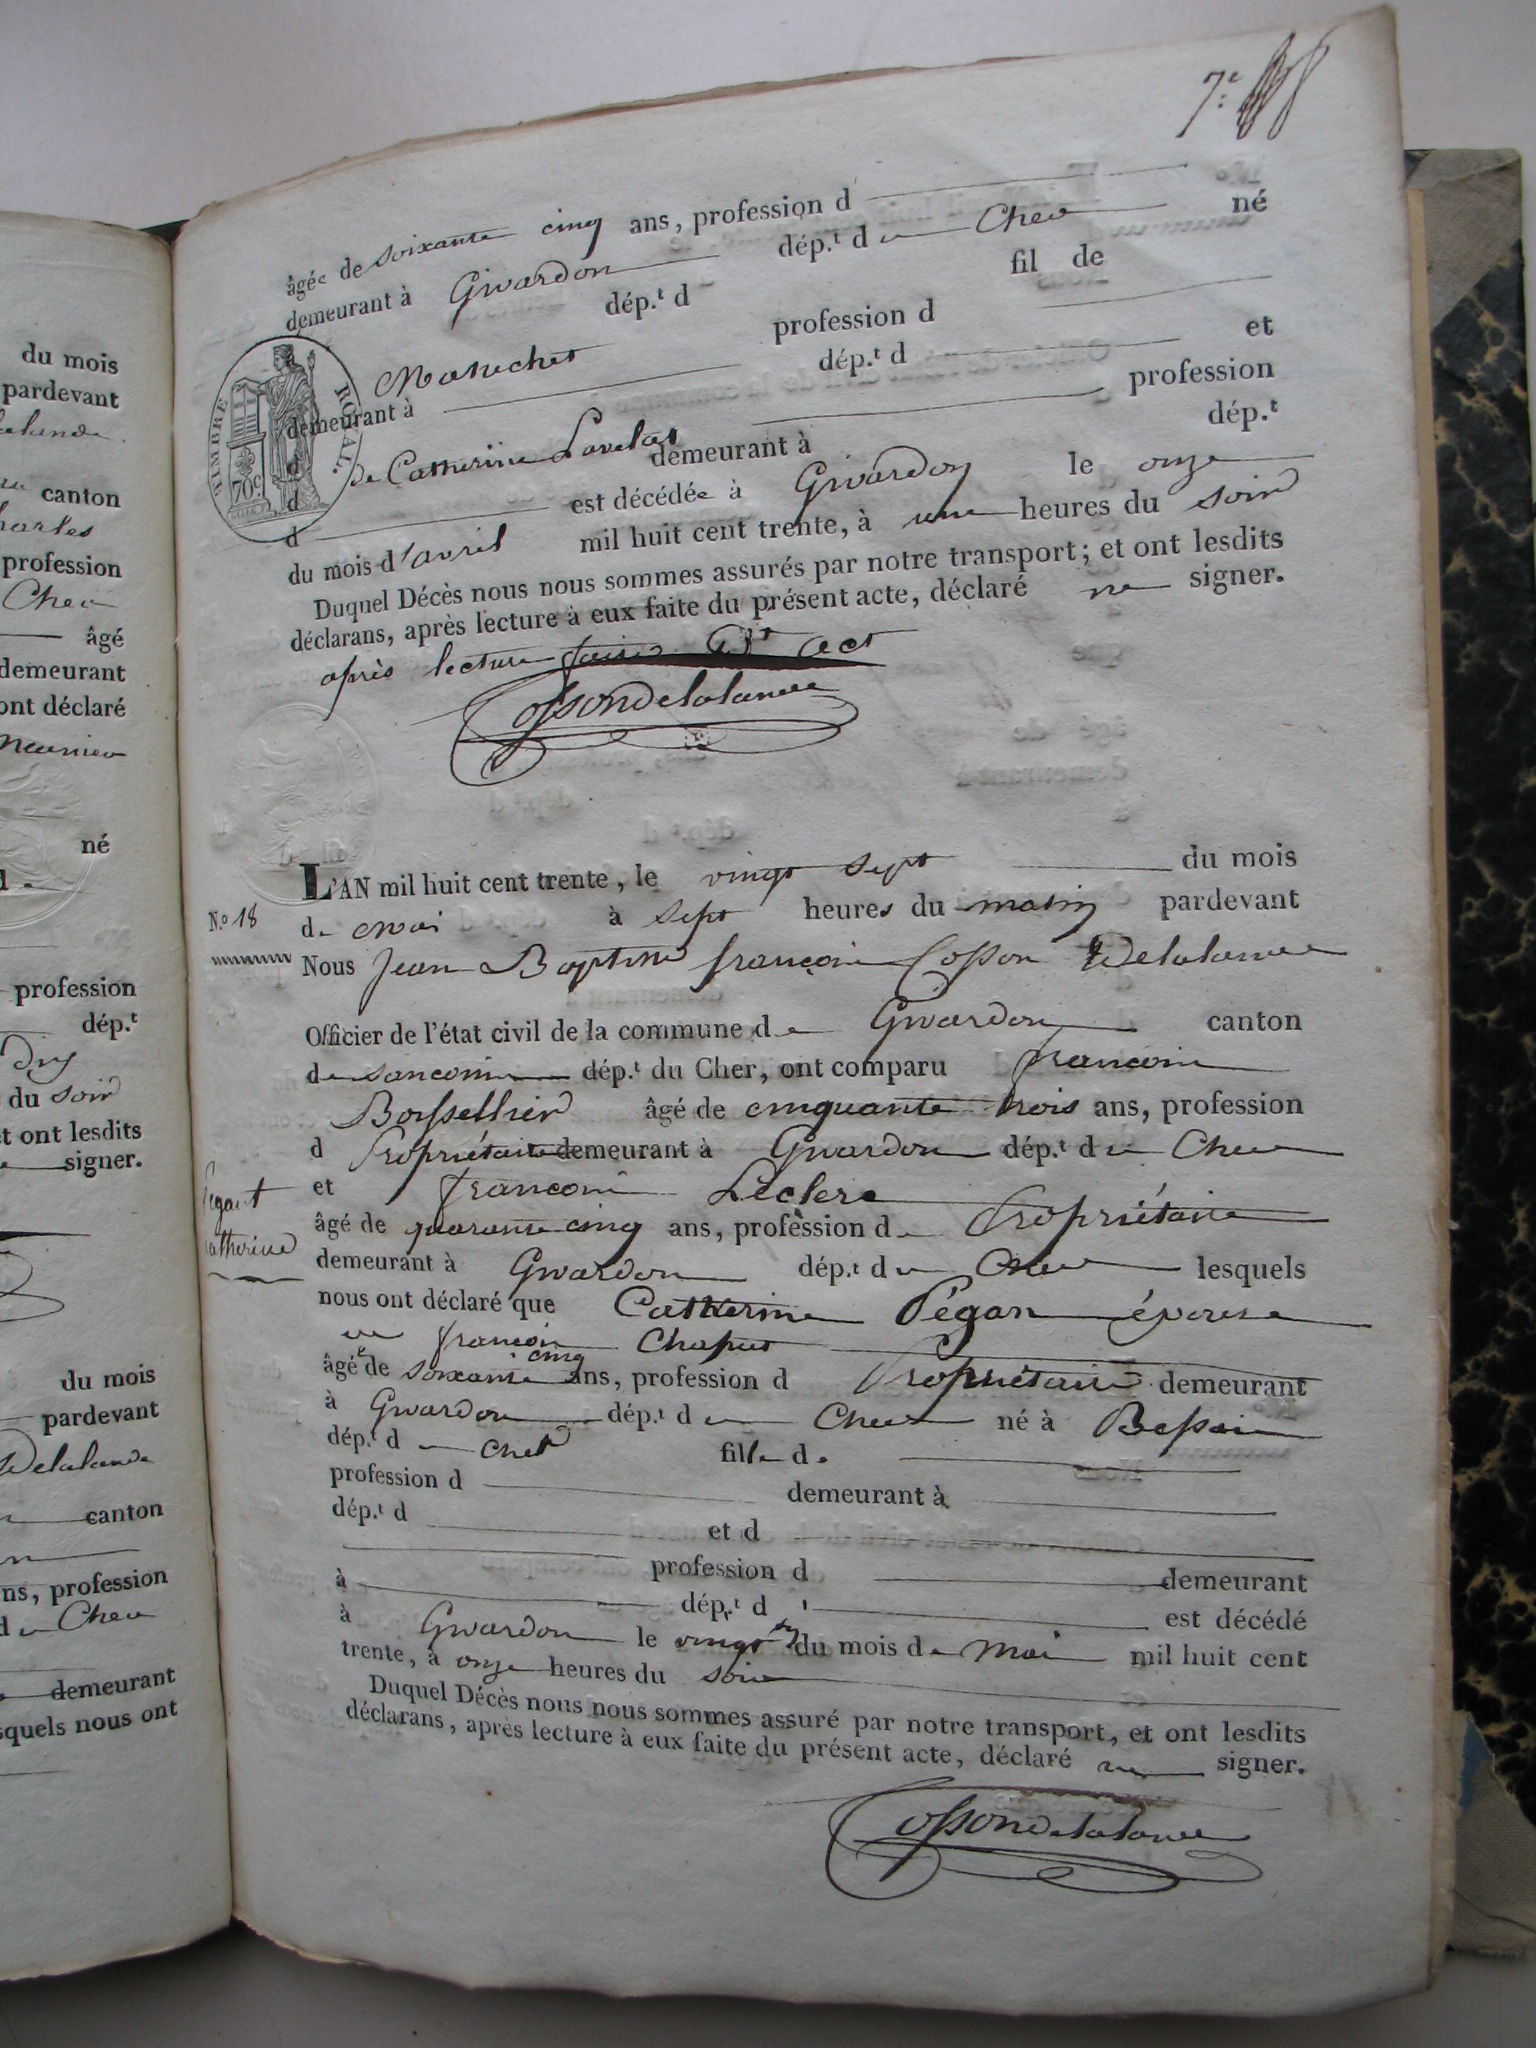 7.e
âgée de soixante cinq ans, profession d
demeurant à Givardon dép.t du Cher né
à dép.t d fil de
Maruchet profession d
demeurant à dép.t d et
de Catherine Lavelat profession
d demeurant à dép.t
d est décédée à Givardon le onze
du mois d'avril mil huit cent trente, à une heures du soir
Duquel Décès nous nous sommes assurés par notre transport; et ont lesdits
déclarans, après lecture à eux faite du présent acte, déclaré ne signer.
après lecture faite Dt act
Cosson Delalande
TIMBRE ROYAL.
70c
L'AN mil huit cent trente, le vingt sept du mois
N.o 18
de mai à sept heures du matin pardevant
Nous Jean Baptiste françois Cosson Delalande
Officier de l'état civil de la commune de Givardon canton
de sancoins dép.t du Cher, ont comparu françois
Boissellier âgé de cinquante trois ans, profession
d Propriétaire demeurant à Givardon dép.t du Cher
et françois Leclerc
Pegant
Catherine
âgé de quarante cinq ans, profession de Propriétaire
demeurant à Givardon dép.t du Cher lesquels
nous ont déclaré que Catherine Pégan épouse
de françois Chaput
âgée de soixante cinq ans, profession d Propriétaire demeurant
à Givardon dép.t du Cher né à Bessais
dép.t d Cher fille de
profession d demeurant à
dép.t d et d
profession d demeurant
à dép.t d est décédé
à Givardon le vingt six du mois de Mai mil huit cent
trente, à onze heures du soir
Duquel Décès nous nous sommes assuré par notre transport, et ont lesdits
déclarans, après lecture à eux faite du présent acte, déclaré ne signer.
Cosson Delalande
du mois
pardevant
canton
Charles
profession
Cher
âgé
demeurant
ont déclaré
né
profession
dép.t
du soir
et ont lesdits
signer.
du mois
pardevant
Delalande
canton
profession
Cher
demeurant
nous ont